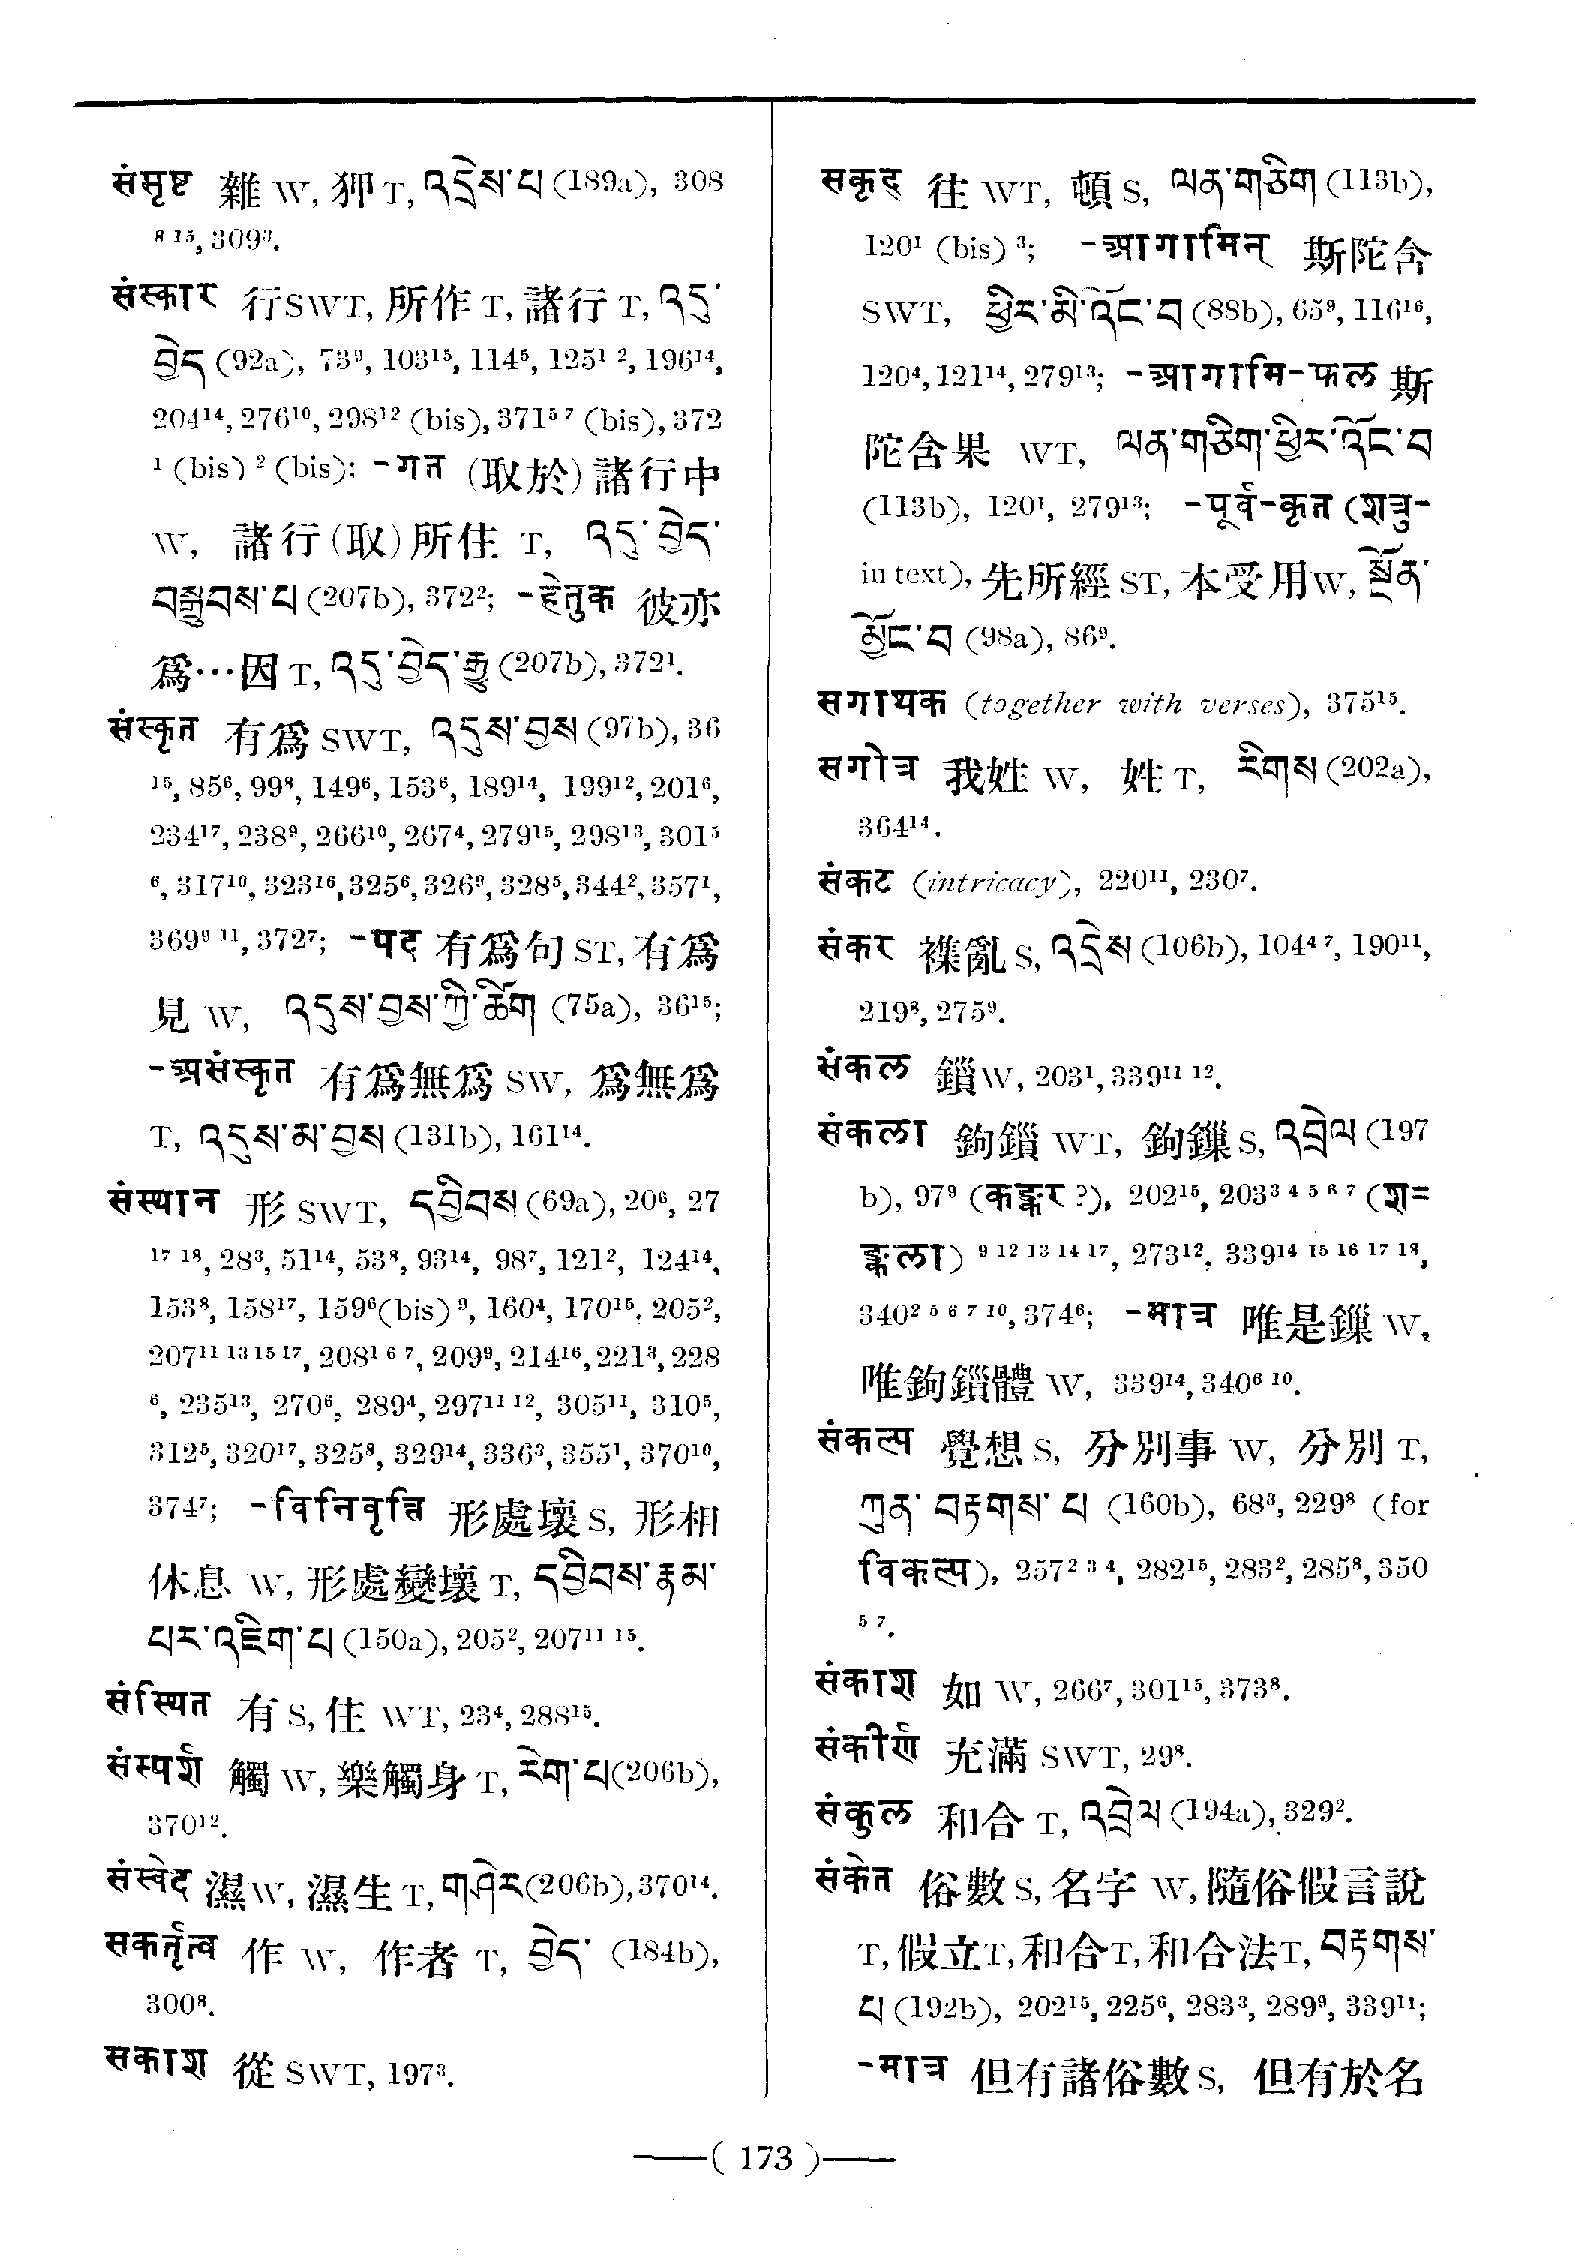 संसृष्ट 雜 W, 狎 T, འདྲེས་པ (189a), 308
⁸ ¹⁵, 309³.
संस्कार 行SWT, 所作 T, 諸行 T, འདུ་
བྱེད (92a), 73⁹, 103¹⁵, 114⁵, 125¹ ², 196¹⁴,
204¹⁴, 276¹⁰, 298¹² (bis), 371⁵ ⁷ (bis), 372
¹ (bis) ² (bis); -गत (取於) 諸行中
W, 諸行(取)所住 T, འདུ་བྱེད་
བསྒྲུབས་པ (207b), 372²; -हेतुक 彼亦
爲…因 T, འདུ་བྱེད་རྒྱུ (207b), 372¹.
संस्कृत 有爲 SWT, འདུས་བྱས (97b), 36
¹⁵, 85⁶, 99⁸, 149⁶, 153⁶, 189¹⁴, 199¹², 201⁶,
234¹⁷, 238⁹, 266¹⁰, 267⁴, 279¹⁵, 298¹³, 301⁵
⁶, 317¹⁰, 323¹⁶, 325⁶, 326⁹, 328⁵, 344², 357¹,
369⁹ ¹¹, 372⁷; -पद 有爲句 ST, 有爲
見 W, འདུས་བྱས་ཀྱི་ཚིག (75a), 36¹⁵;
-असंस्कृत 有爲無爲 SW, 爲無爲
T, འདུས་མ་བྱས (131b), 161¹⁴.
संस्थान 形 SWT, དབྱིབས (69a), 20⁶, 27
¹⁷ ¹⁸, 28³, 51¹⁴, 53⁸, 93¹⁴, 98⁷, 121², 124¹⁴,
153⁸, 158¹⁷, 159⁶(bis) ⁹, 160⁴, 170¹⁵, 205²,
207¹¹ ¹³ ¹⁵ ¹⁷, 208¹ ⁶ ⁷, 209⁹, 214¹⁶, 221³, 228
⁶, 235¹³, 270⁶, 289⁴, 297¹¹ ¹², 305¹¹, 310⁵,
312⁵, 320¹⁷, 325⁸, 329¹⁴, 336³, 355¹, 370¹⁰,
374⁷; -विनिवृत्ति 形處壞 S, 形相
休息 W, 形處變壞 T, དབྱིབས་རྣམ་
པར་འཇིག་པ (150a), 205², 207¹¹ ¹⁵.
संस्थित 有 S, 住 WT, 23⁴, 288¹⁵.
संस्पर्श 觸 W, 樂觸身 T, རེག་པ(206b),
370¹².
संस्वेद 濕W, 濕生 T, གཤེར(206b), 370¹⁴.
सकर्तृत्व 作 W, 作者 T, བྱེད་ (184b),
300⁸.
सकाश 從 SWT, 197³.
सकृद् 往 WT, 頓 S, ལན་གཅིག (113b),
120¹ (bis) ³; -आगामिन् 斯陀含
SWT, ཕྱིར་མི་འོང་བ (88b), 65⁸, 116¹⁶,
120⁴, 121¹⁴, 279¹³; -आगामि-फल 斯
陀含果 WT, ལན་གཅིག་ཕྱིར་འོང་བ
(113b), 120¹, 279¹³; -पूर्व-कृत (शत्रु-
in text), 先所經 ST, 本受用W, སྔོན་
མྱོང་བ (98a), 86⁹.
सगाथक (together with verses), 375¹⁵.
सगोत्र 我姓 W, 姓 T, རིགས (202a),
364¹⁴.
संकट (intricacy), 220¹¹, 230⁷.
संकर 襍亂 S, འདྲེས (106b), 104⁴ ⁷, 190¹¹,
219⁸, 275⁹.
संकल 鎖W, 203¹, 339¹¹ ¹².
संकला 鉤鎖 WT, 鉤鏁 S, འབྲེལ (197
b), 97⁹ (कङ्कर ?), 202¹⁵, 203³ ⁴ ⁵ ⁶ ⁷ (शृ=
ङ्कला) ⁹ ¹² ¹³ ¹⁴ ¹⁷, 273¹², 339¹⁴ ¹⁵ ¹⁶ ¹⁷ ¹⁸,
340² ⁵ ⁶ ⁷ ¹⁰, 374⁶; -मात्र 唯是鏁 W,
唯鉤鎖體 W, 339¹⁴, 340⁶ ¹⁰.
संकल्प 覺想 S, 分別事 W, 分別 T,
ཀུན་བརྟགས་པ (160b), 68³, 229⁸ (for
विकल्प), 257² ³ ⁴, 282¹⁵, 283², 285⁸, 350
⁵ ⁷.
संकाश 如 W, 266⁷, 301¹⁵, 373⁸.
संकीर्ण 充滿 SWT, 29⁸.
संकुल 和合 T, འབྲེལ (194a), 329².
संकेत 俗數 S, 名字 W, 隨俗假言說
T, 假立T, 和合T, 和合法T, བརྟགས་
པ (192b), 202¹⁵, 225⁶, 283³, 289⁹, 339¹¹;
-मात्र 但有諸俗數 S, 但有於名
—( 173 )—